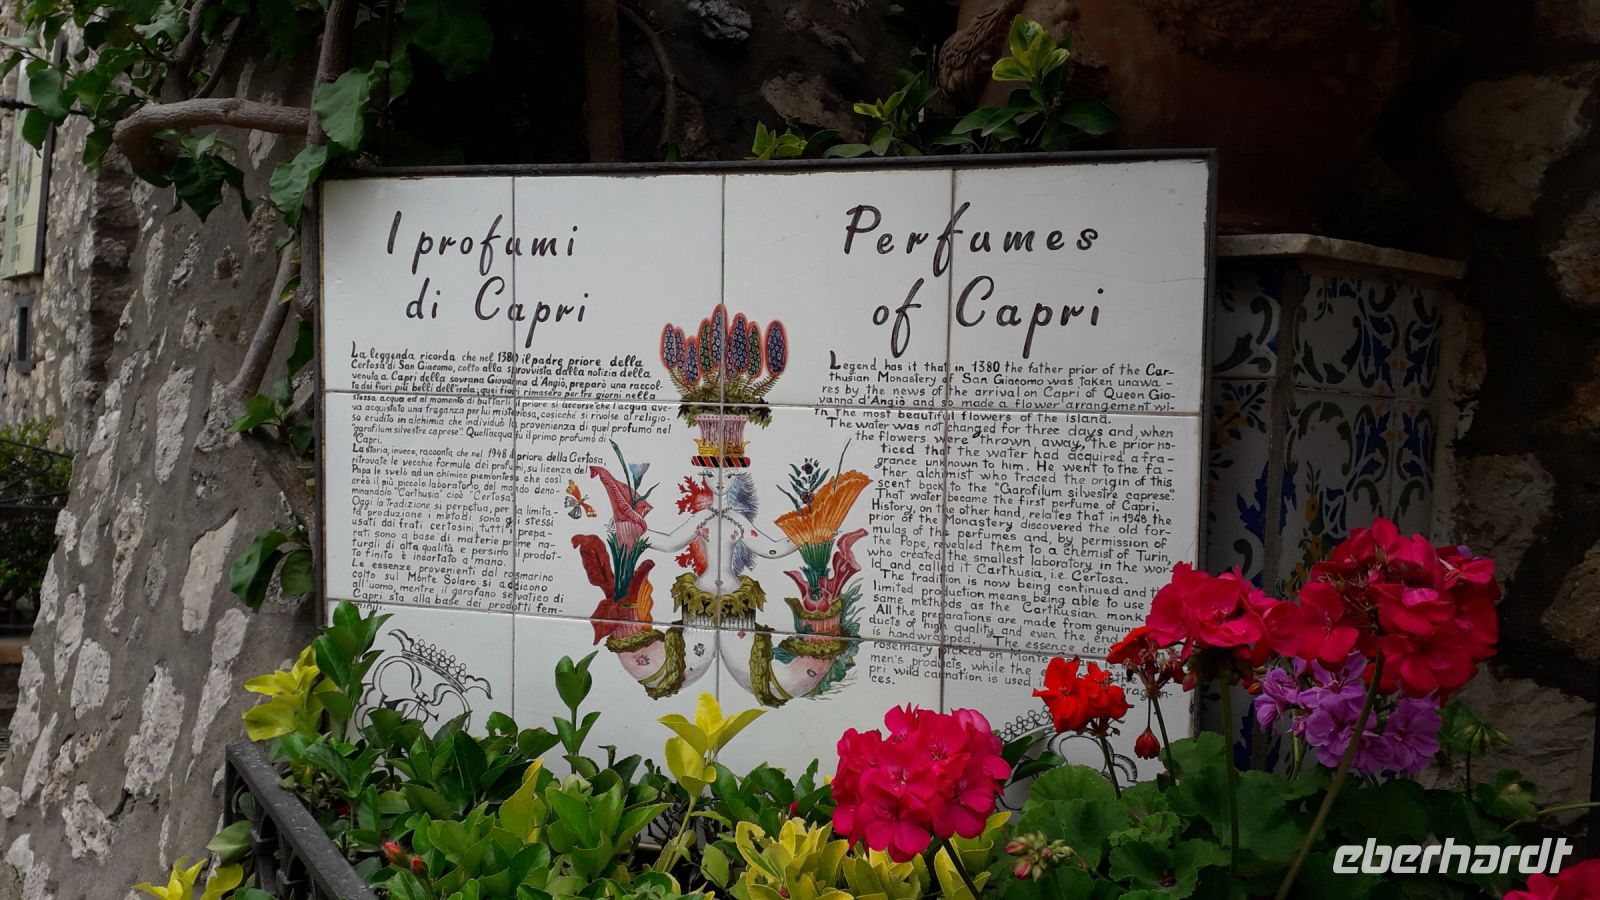 I profumi
di Capri
La leggenda ricorda che nel 1380 il padre priore della
Certosa di San Giacomo, colto alla sprovvista dalla notizia della
venuta a Capri della sovrana Giovanna d'Angiò, preparò una raccol-
ta dei fiori più belli dell'isola; quei fiori rimasero per tre giorni nella
stessa acqua ed al momento di buttarli il priore si accorse che l'acqua ave-
va acquistato una fraganza per lui misteriosa, cosicchè si rivolse al religio-
so erudito in alchimia che individuò la provenienza di quel profumo nel
"garofilum silvestre caprese". Quell'acqua fu il primo profumo di
Capri.
La storia, invece, racconta che nel 1948 il priore della Certosa,
ritrovate le vecchie formule dei profumi, su licenza del
Papa le svelò ad un chimico piemontese che così
creò il più piccolo laboratorio del mondo deno-
minandolo "Carthusia" cioè "Certosa".
Oggi la tradizione si perpetua, per la limita-
ta produzione i metodi sono gli stessi
usati dai frati certosini, tutti i prepa-
rati sono a base di materie prime na-
turali di alta qualità e persino il prodot-
to finito è incartato a mano.
Le essenze provenienti dal rosmarino
colto sul Monte Solaro si addicono
all'uomo, mentre il garofano selvatico di
Capri sta alla base dei prodotti fem-
minili.
Perfumes
of Capri
Legend has it that in 1380 the father prior of the Car-
thusian Monastery of San Giacomo was taken unawa-
res by the news of the arrival on Capri of Queen Gio-
vanna d'Angiò and so made a flower arrangement wi-
th the most beautiful flowers of the Island.
The water was not changed for three days and, when
the flowers were thrown away, the prior no-
ticed that the water had acquired a fra-
grance unknown to him. He went to the fa-
ther alchemist who traced the origin of this
scent back to the "Garofilum silvestre caprese".
That water became the first perfume of Capri.
History, on the other hand, relates that in 1948 the
prior of the Monastery discovered the old for-
mulas of the perfumes and, by permission of
the Pope, revealed them to a chemist of Turin,
who created the smallest laboratory in the wor-
ld and called it Carthusia, i.e. Certosa.
The tradition is now being continued and th
limited production means being able to use
same methods as the Carthusian monk
All the preparations are made from genuin
ducts of high quality and even the end
is handwrapped. The essence deri
rosemary picked on Monte
men's products, while the the
pri wild carnation is used fragran-
ces.
eberhardt